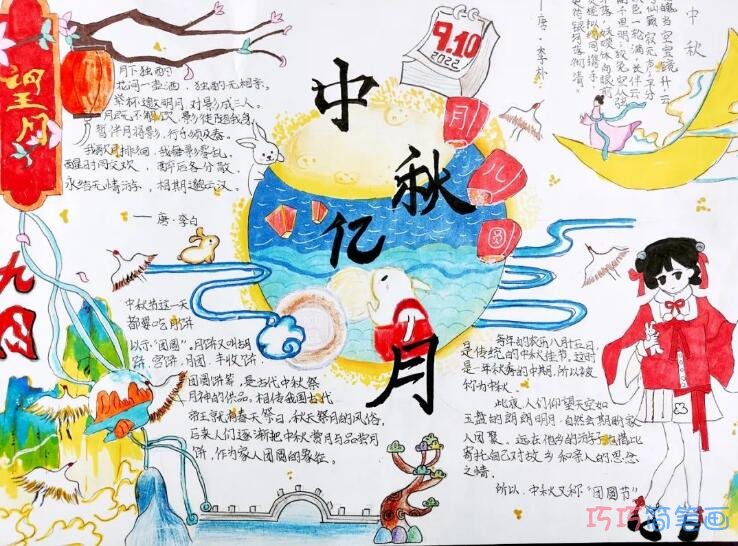 望月
九月
月下独酌
花间一壶酒，独酌无相亲。
举杯邀明月，对影成三人。
月既不解饮，影徒随我身。
暂伴月将影，行乐须及春。
我歌月排徊，我舞影零乱。
醒时同交欢，醉后各分散。
永结无情游，相期邈云汉。
——唐·李白
中秋忆月
9.10
2022
月
儿
圆
中秋
——唐·李朴
中秋节这一天
都要吃月饼
以示“团圆”。月饼又叫胡
饼、宫饼、月团、丰收饼、
团圆饼等，是古代中秋祭
月神的供品，相传我国古代
帝王就有春天祭日、秋天祭月的风俗，
后来人们逐渐把中秋赏月与品尝月
饼，作为家人团圆的象征。
每年的农历八月十五日，
是传统的中秋佳节，这时
是一年秋季的中期，所以被
称为中秋。
此夜，人们仰望天空如
玉盘的朗朗明月，自然会期盼家
人团聚。远在他乡的游子也借此
寄托自己对故乡和亲人的思念
之情。
所以，中秋又称“团圆节”
巧巧简笔画